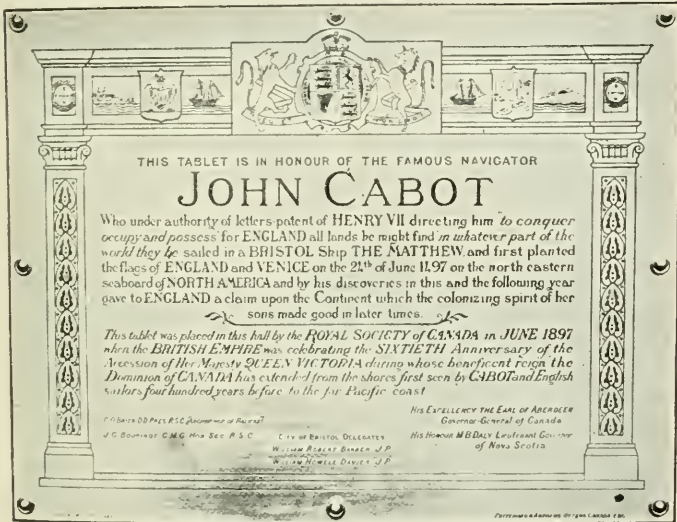 THIS TABLET IS IN HONOUR OF THE FAMOUS NAVIGATOR
JOHN CABOT
Who under authority of letters-patent of HENRY VII directing him "to conquer
occupy and possess" for ENGLAND all lands he might find "in whatever part of the
world they be" sailed in a BRISTOL Ship THE MATTHEW, and first planted
the flags of ENGLAND and VENICE on the 24th of June 1497 on the north eastern
seaboard of NORTH AMERICA and by his discoveries in this and the following year
gave to ENGLAND a claim upon the Continent which the colonizing spirit of her
sons made good in later times.
This tablet was placed in this hall by the ROYAL SOCIETY of CANADA in JUNE 1897
when the BRITISH EMPIRE was celebrating the SIXTIETH Anniversary of the
Accession of Her Majesty QUEEN VICTORIA during whose beneficent reign the
Dominion of CANADA has extended from the shores first seen by CABOT and English
sailors four hundred years before to the far Pacific coast
His Excellency THE EARL OF ABERDEEN
Governor-General of Canada
D.D. PRES R.S.C.
J.G. BOURINOT C.M.G. HON SEC R.S.C.
CITY OF BRISTOL DELEGATES
His Honour M B DALY Lieutenant Governor
of Nova Scotia
WILLIAM ROBERT BARKER J.P.
WILLIAM HOWELL DAVIES J.P.